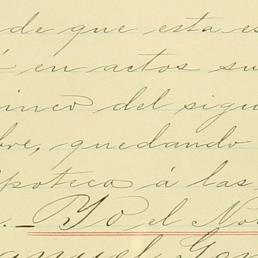 de que esta es
á en actos su
cinco del sigu
bre, quedando
ipoteca á las
.— Yo el Not
anuel Gon